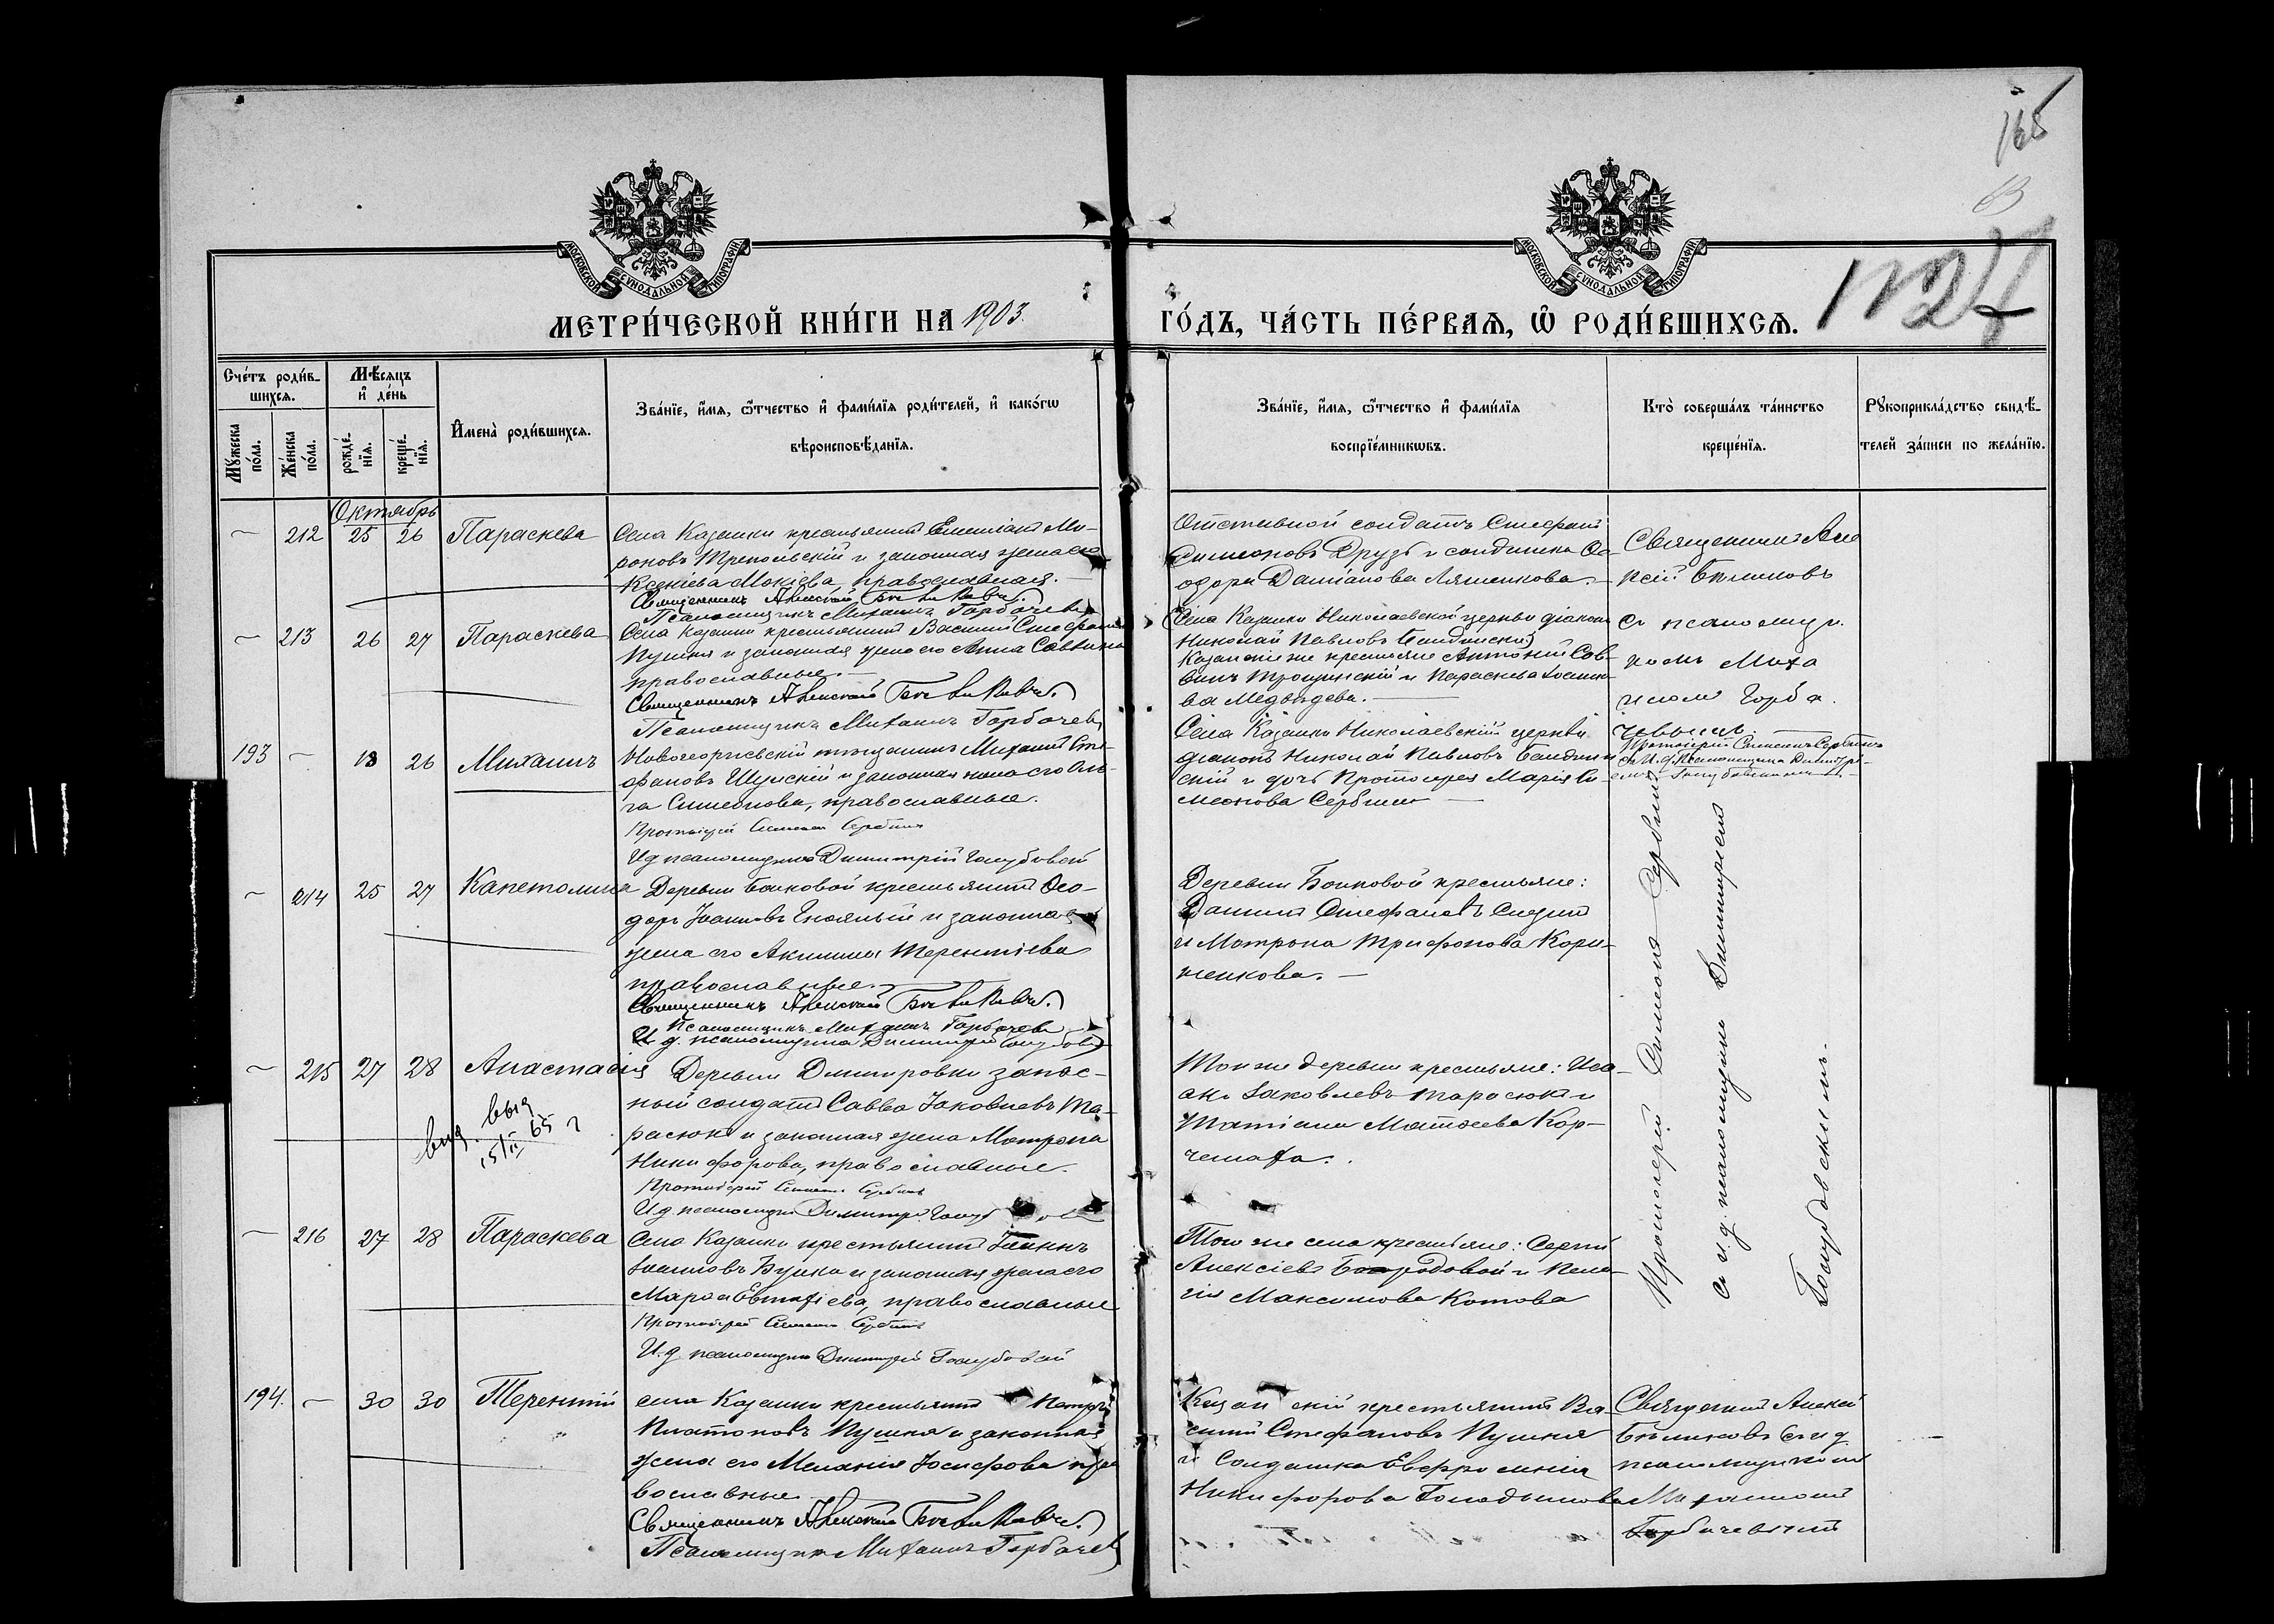 165
МОСКОВСКОЙ СѴНОДАЛЬНОЙ ТИПОГРАФІИ
МОСКОВСКОЙ СѴНОДАЛЬНОЙ ТИПОГРАФІИ
МЕТРИ́ЧЕСКОЙ КНИ́ГИ НА 1903.
ГО́ДЪ, ЧА́СТЬ ПЕ́РВАѦ, Ѡ҆ РОДИ́ВШИХСѦ.
Сче́тъ роди́в-
шихсѧ.
Мꙋ́жеска
по́ла.
Же́нска
по́ла.
Мѣ́сѧцъ
и҆ де́нь
рожде́-
нїѧ.
креще́-
нїѧ.
И҆мена̀ роди́вшихсѧ.
Зва́нїе, и҆́мѧ, ѻ҆́тчество и҆ фами́лїѧ роди́телей, и҆ како́гѡ
вѣроисповѣ́данїѧ.
Зва́нїе, и҆́мѧ, ѻ҆́тчество и҆ фами́лїѧ
воспрїе́мникѡвъ.
Кто̀ соверша́лъ та́инство
креще́нїѧ.
Рꙋкоприкла́дство свидѣ́-
телей за́писи по жела́нїю.
Октябрь
212 25 26 Параскева
Села Казанки крестьянинъ Емиліанъ Ми-
роновъ Трипольскій и законная жена его
Ксенія Мокіева, православная.
Священникъ Алексій Бѣликовъ.
Псаломщикъ Михаилъ Горбачев
Отставной солдатъ Стефанъ
Симеоновъ Друзь и солдатка Ѳе-
одора Даміанова Ляшенкова.
Священникъ Але
ксій Бѣликовъ
съ псаломщи
комъ Миха
иломъ Горба
чевымъ.
213 26 27 Параскева
Села Казанки крестьянинъ Василій Стефанов
Пушка и законная жена его Анна Саввина
православные.
Священникъ Алексій Бѣликовъ.
Псаломщикъ Михаилъ Горбачев
Села Казанки Николаевской церкви діаконъ
Николай Павловъ
Казанскіе же крестьяне Антоній Сав-
винъ и Параскева
ва Медвѣдева.
193 13 26 Михаилъ
Новогеоргіевскій мѣщанинъ Михаилъ Сте-
фановъ Шумскій и законная жена его Оль-
га Симеонова, православные.
Протоіерей Симеонъ Сербинъ
И. д. псаломщика Димитрій Голубовскій
Села Казанки Николаевской церкви
діаконъ Николай Павловъ
скій и дочь Протоіерея Марія Си-
меонова Сербинъ
Протоіерей Симеонъ Сербинъ
съ И. д. Псаломщика Димитрі-
емъ Голубовскимъ
214 25 27 Капетолина
Деревни Бойковой крестьянинъ Ѳео-
доръ Іоанновъ и законная
жена его Акилина Терентіева
православные.
Священникъ Алексій Бѣликовъ.
Псаломщикъ Михаилъ Горбачевъ
И. д. псаломщика Димитрій Голубов
Деревни Бойковой крестьяне:
Даніилъ Стефановъ
и Матрона Трифонова Кори-
ненкова.
Протоіерей Симеонъ Сербинъ
съ и. д. псаломщика Димитріемъ
Голубовскимъ.
215 27 28 Анастасія
выд.
15/II 65 г
Деревни Димитровки запас-
ный солдатъ Савва Іаковлевъ Та-
расюкъ и законная жена Матрона
Никифорова, православные.
Протоіерей Симеонъ Сербинъ
И. д. псаломщика Димитрій Голуб
Той же деревни крестьяне: Иса-
акъ Іаковлевъ Тарасюкъ и
Татіана Матѳеева Кор-
чемаха.
216 27 28 Параскева
Села Казанки крестьянинъ Іоаннъ
Іоанновъ Бушка и законная жена его
Марѳа Евтихіева, православные
Протоіерей Симеонъ Сербинъ
И. д. псаломщика Димитрій Голубовскій
Того же села крестьяне: Сергій
Алексіевъ и Пела-
гія Максимова Котова
194. 30 30 Терентій
села Казанки крестьянинъ Петръ
Платоновъ Пушка и законная
жена его Меланія Іосифова пра
вославные
Священникъ Алексій Бѣликовъ.
Псаломщикъ Михаилъ Горбачев
Казанскій крестьянинъ Ва-
силій Стефановъ Пушка
и Солдатка Евфросинія
Никифорова
Священникъ Алексій
Бѣликовъ съ и. д.
псаломщикомъ
Михаиломъ
Горбачевымъ